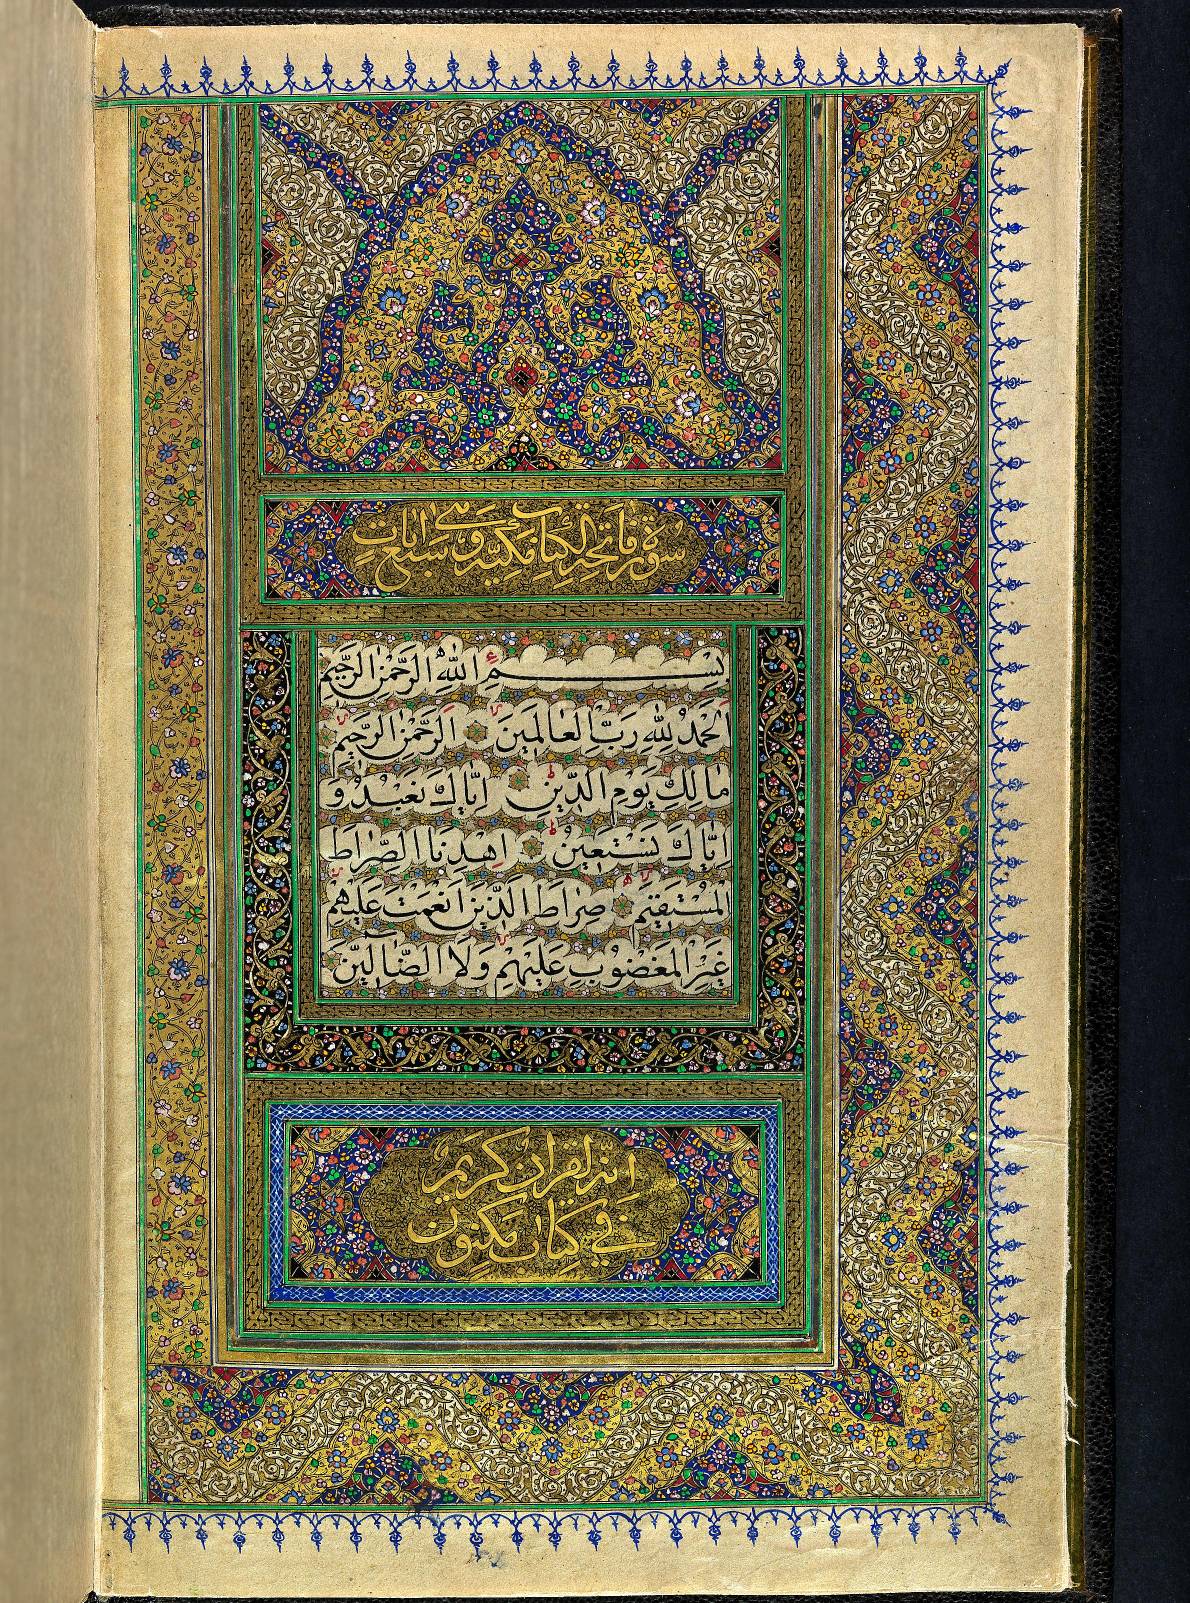 سورة فاتحة الكتاب مكية وهي سبع آيات
بِسْمِ اللّٰهِ الرَّحْمٰنِ الرَّحِيمِ
اَلْحَمْدُ لِلّٰهِ رَبِّ الْعٰالَمِينَ اَلرَّحْمٰنِ الرَّحِيمِ
مٰالِكِ يَوْمِ الدِّينِ اِيّٰاكَ نَعْبُدُ وَ
اِيّٰاكَ نَسْتَعِينُ اِهْدِنَا الصِّرٰاطَ
الْمُسْتَقِيمَ صِرٰاطَ الَّذِينَ اَنْعَمْتَ عَلَيْهِمْ
غَيْرِ الْمَغْضُوبِ عَلَيْهِمْ وَلَا الضّٰالِّينَ
اِنه لقران كريم
في كتاب مكنون